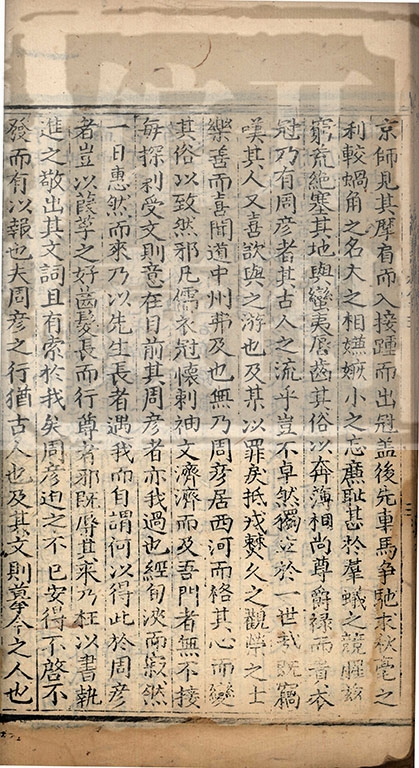 京師見其摩肩而入接踵而出冠盖後先車馬争馳求秋毫之
利較蝸角之名大之相嫌嫉小之忘廉耻甚於羣蟻之競腥羶
窮荒絶塞其地與蠻夷唇齒其俗以奔薄相尚尊爵禄而賁衣
冠乃有周彦者其古人之流乎豈不卓然獨立於一世哉既竊
嘆其人又喜欲與之游也及某以罪戾抵戎僰久之觀學之士
樂善而喜聞道中州弗及也無乃周彦居西河而格其心而變
其俗以致然邪凡儒衣冠懷刺袖文濟濟而及吾門者無不接
每探刺受文則意在目前其周彦者亦我過也經旬浹而寂然
一日惠然而來乃以先生長者遇我而自謂何以得此於周彦
者豈以葭莩之好齒髮長而行尊者邪既辱其來乃枉以書執
進之敬出其文詞且有索於我矣周彦迫之不已安得不啓不
發而有以報也夫周彦之行猶古人也及其文則慕今之人也